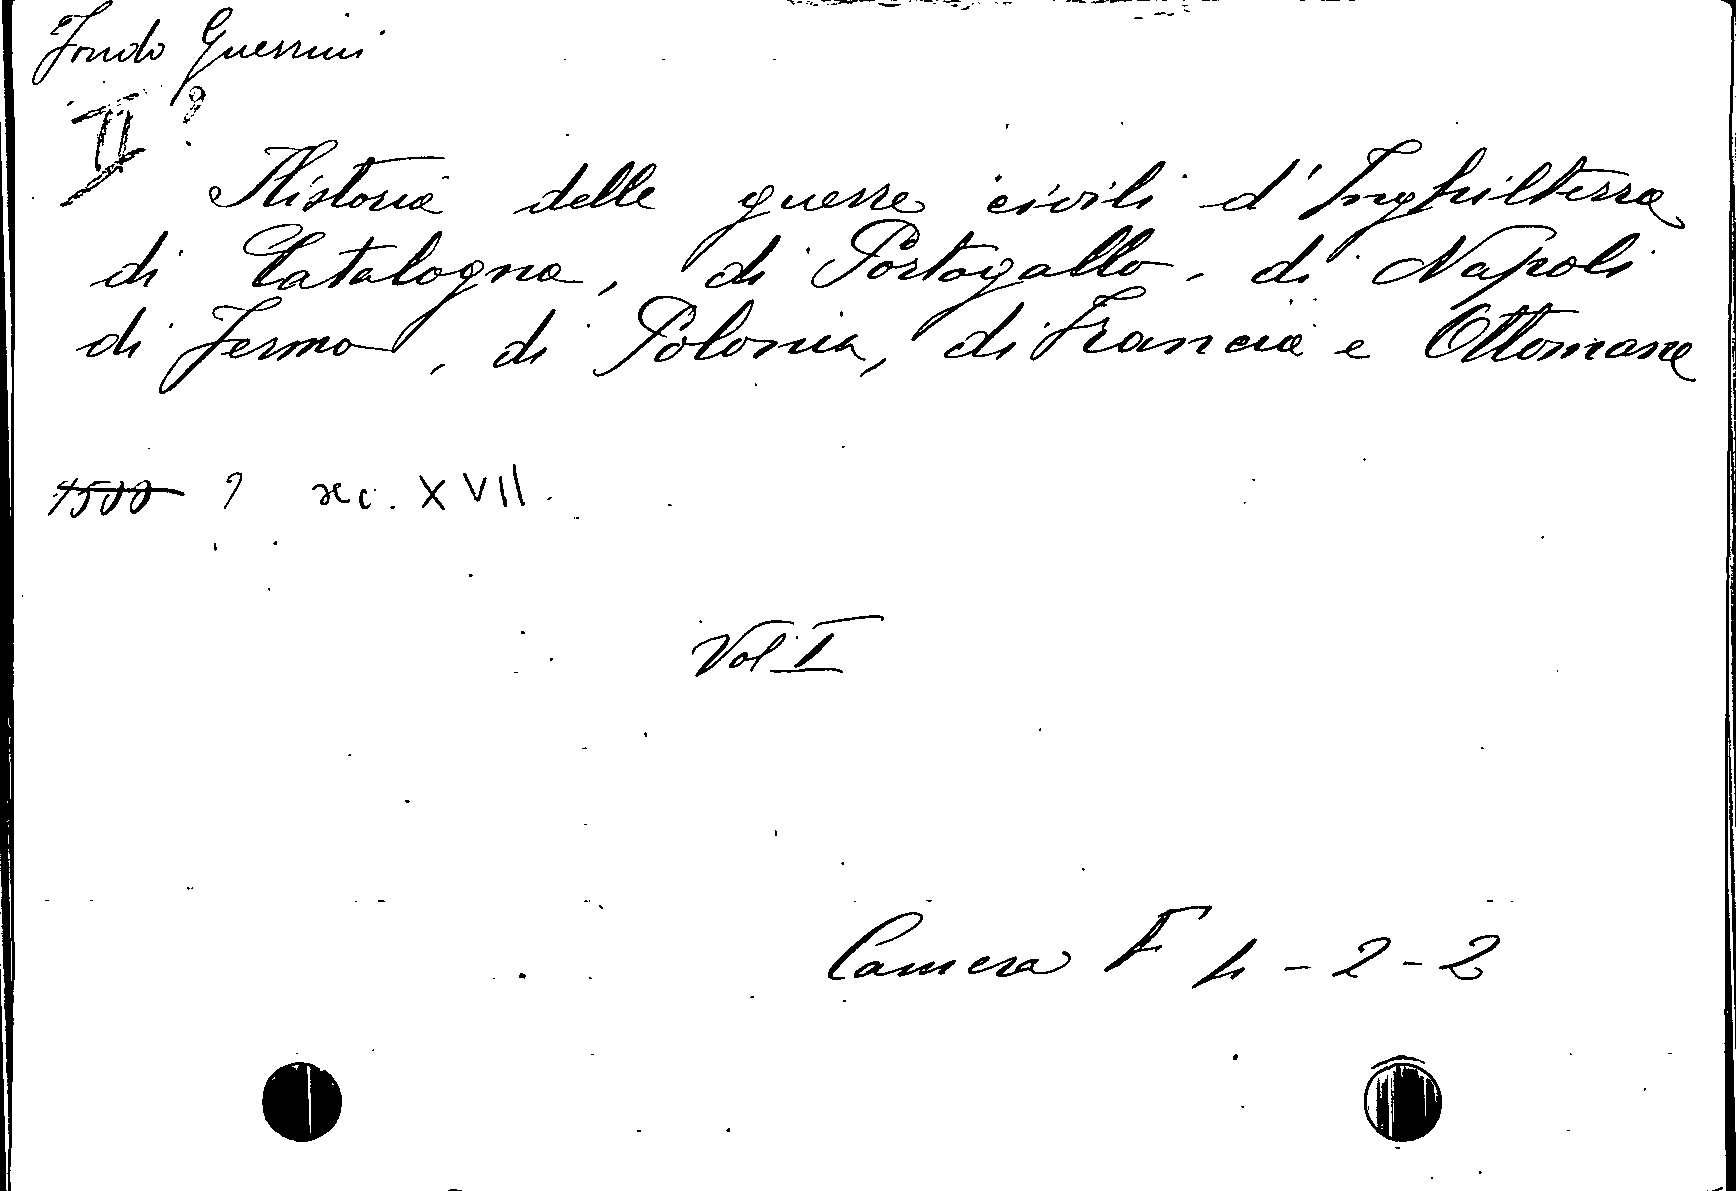 Fondo Guerrini
II ?
Historia delle guerre civili d'Inghilterra
di Catalogna, di Portogallo, di Napoli
di Fermo, di Polonia, di Francia e Ottomane
1500 ? sec. XVII.
Vol I
Camera F 4-2-2